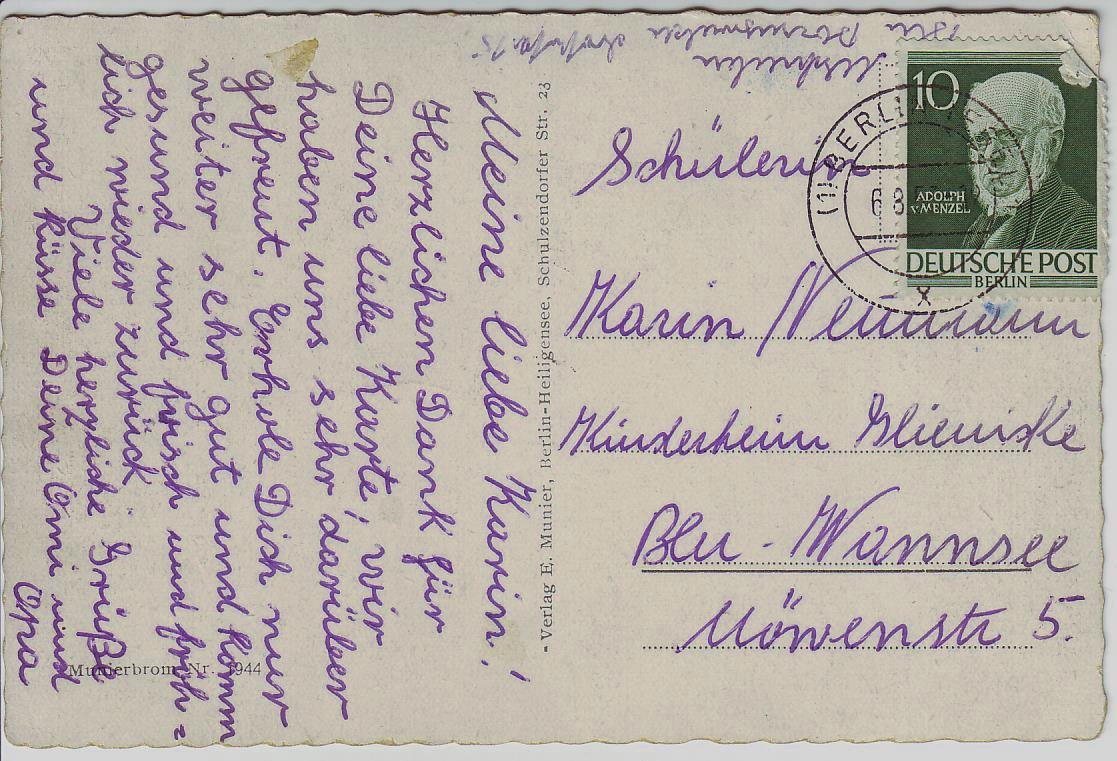 Meine liebe Karin!
Herzlichen Dank für
Deine liebe Karte, wir
haben uns sehr darüber
gefreut. Erhole Dich nur
weiter sehr gut und komm
gesund und frisch und fröh=
lich wieder zurück
Viele herzliche Grüße
und Küsse Deine Omi und
Opa
Munierbrom Nr. 1944
- Verlag E. Munier, Berlin-Heiligensee, Schulzendorfer Str. 23
Schülerin
Karin Neumann
Kinderheim Glienicke
Bln - Wannsee
Möwenstr 5.
(1) BERLIN
10
ADOLPH
v. MENZEL
DEUTSCHE POST
BERLIN
x